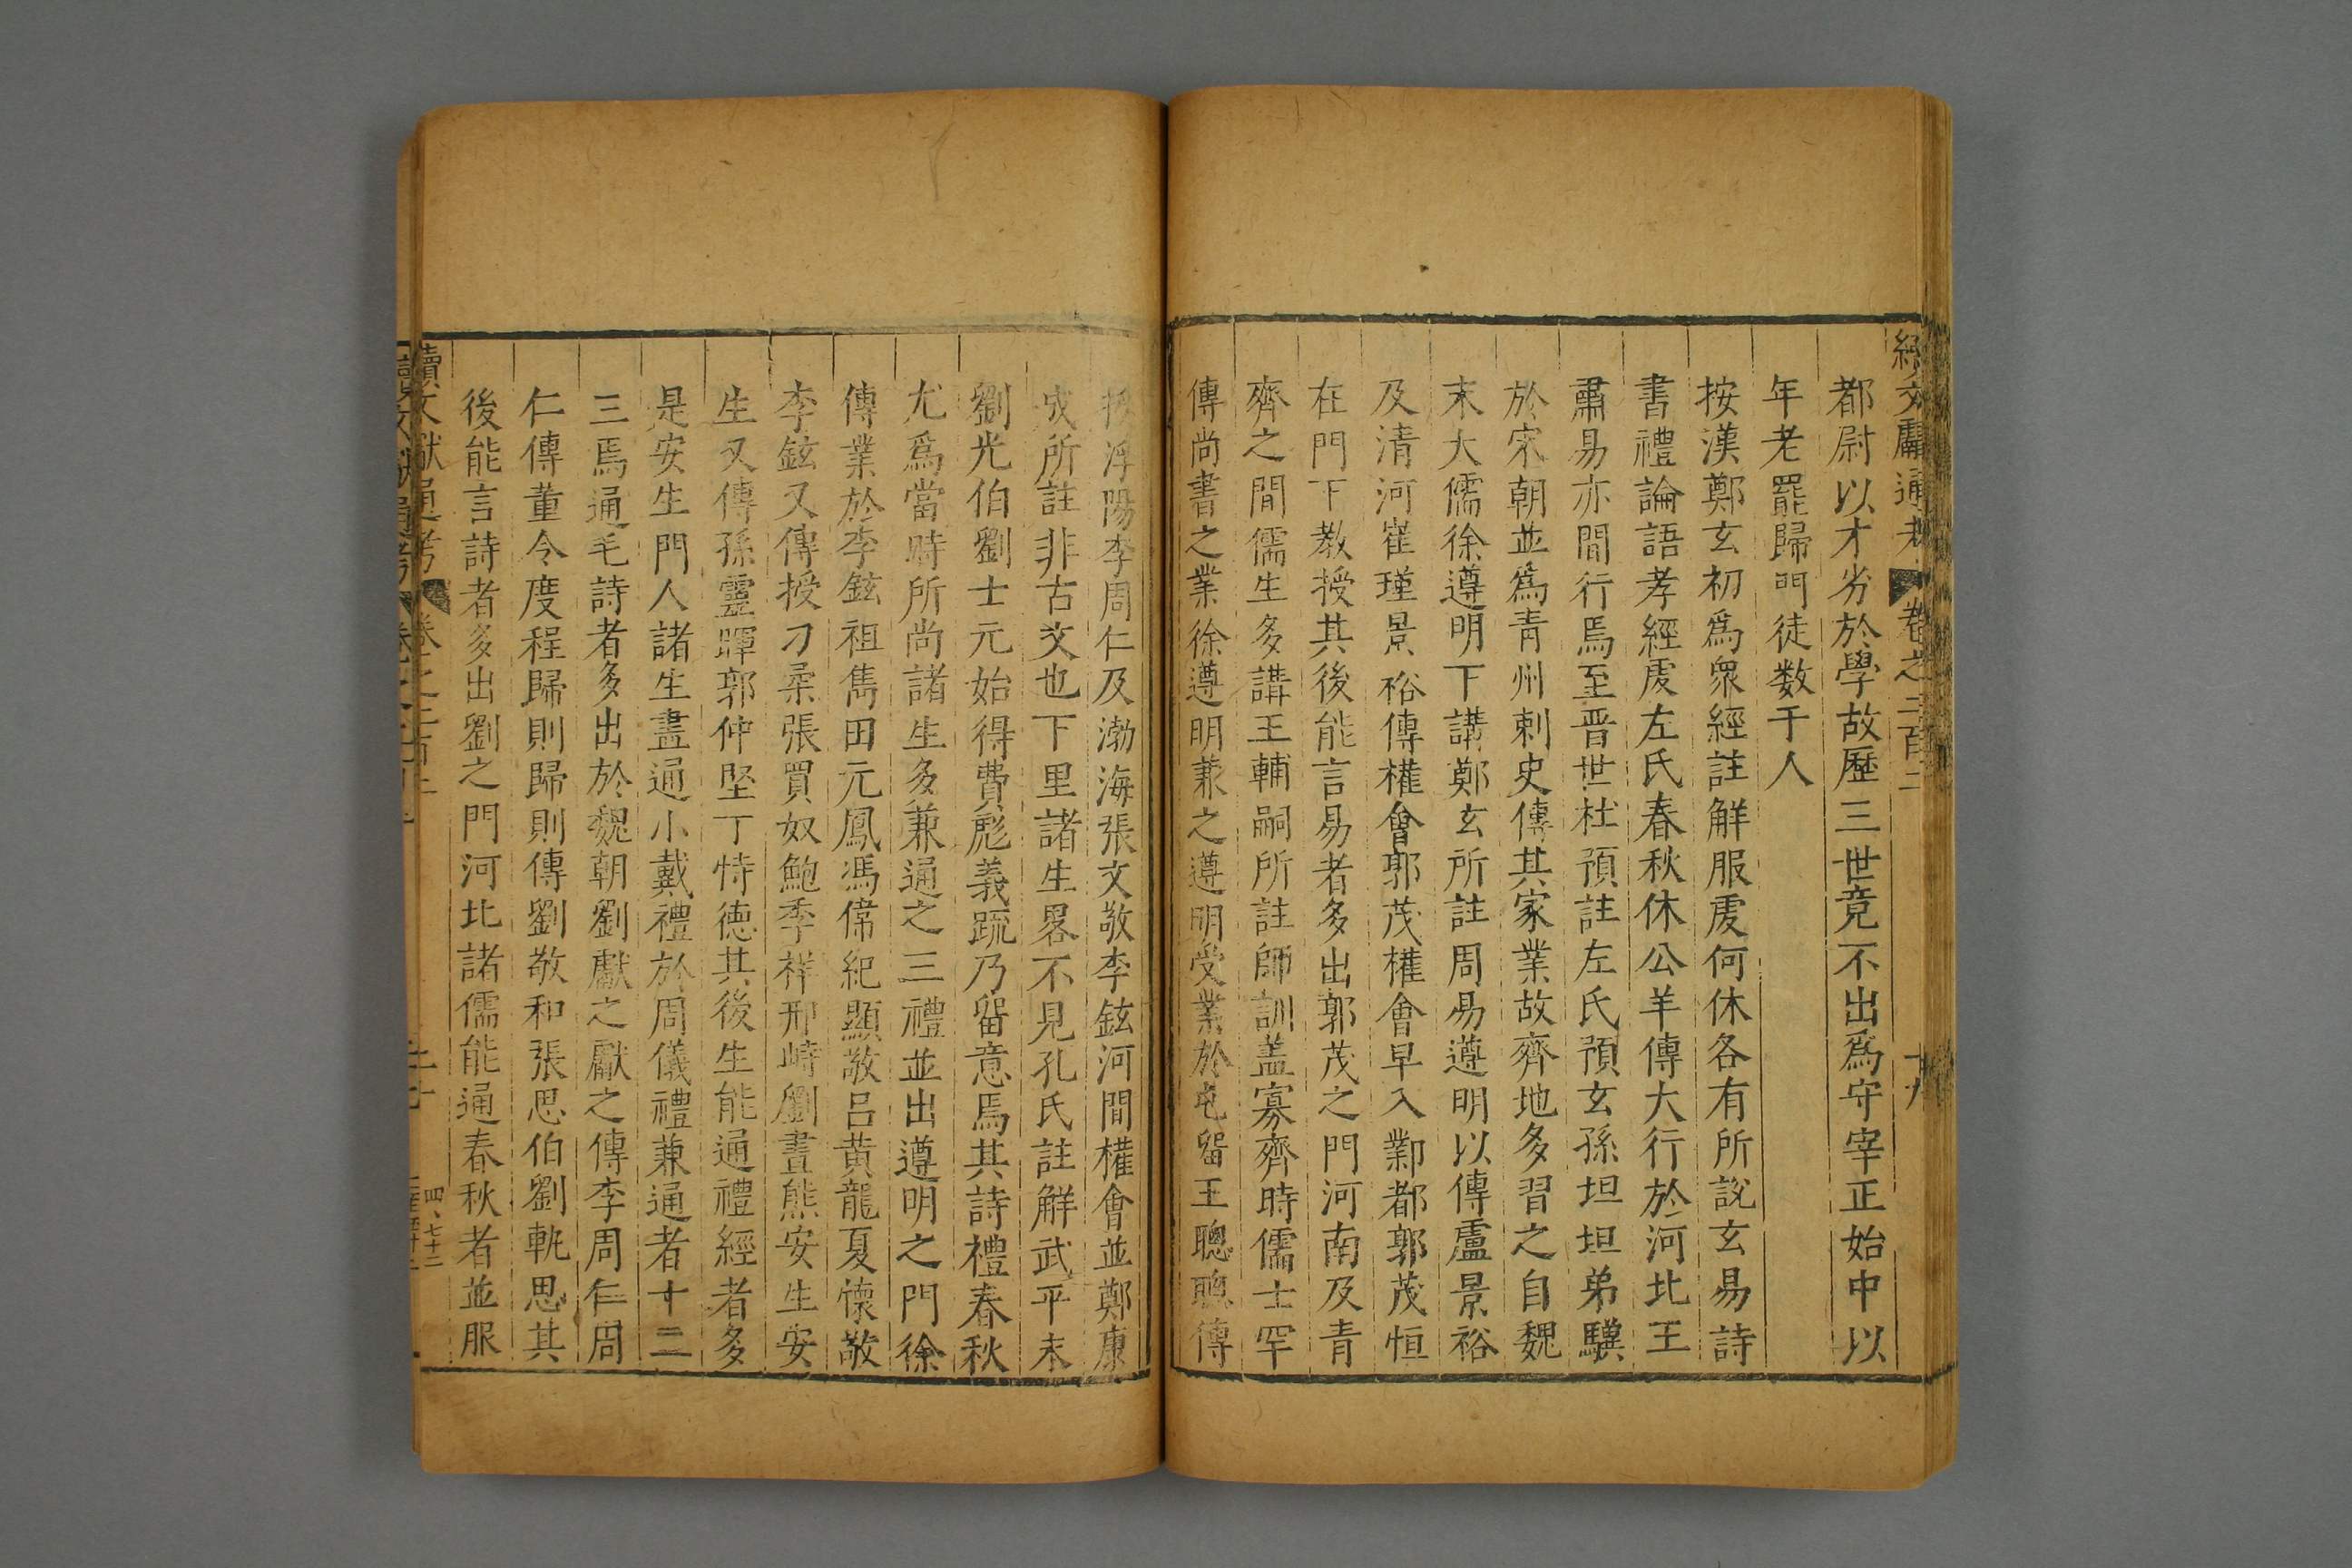 續文獻通考 卷之二百二 十九
都尉以才劣於學故歷三世竟不出爲守宰正始中以
年老罷歸門徒数千人
按漢鄭玄初爲衆經註解服虔何休各有所說玄易詩
書禮論語孝經虔左氏春秋休公羊傳大行於河北王
肅易亦間行焉至晋世杜預註左氏預玄孫坦坦弟驥
於宋朝並爲青州刺史傳其家業故齊地多習之自魏
末大儒徐遵明下講鄭玄所註周易遵明以傳盧景裕
及清河崔瑾景裕傳權會郭茂權會早入鄴都郭茂恒
在門下教授其後能言易者多出郭茂之門河南及青
齊之間儒生多講王輔嗣所註師訓盖寡齊時儒士罕
傳尚書之業徐遵明兼之遵明受業於屯留王聰聰傳
授浮陽李周仁及渤海張文敬李鉉河間權會並鄭康
成所註非古文也下里諸生畧不見孔氏註解武平末
劉光伯劉士元始得費彪義疏乃留意焉其詩禮春秋
尤爲當時所尚諸生多兼通之三禮並出遵明之門徐
傳業於李鉉祖雋田元鳳馮偉紀顯敬吕黄龍夏懷敬
李鉉又傳授刁柔張買奴鮑季祥邢峙劉晝熊安生安
生又傳孫靈暉郭仲堅丁恃德其後生能通禮經者多
是安生門人諸生盡通小戴禮於周儀禮兼通者十二
三焉通毛詩者多出於魏朝劉獻之獻之傳李周仁周
仁傳董令度程歸則歸則傳劉敬和張思伯劉軌思其
後能言詩者多出劉之門河北諸儒能通春秋者並服
續文獻通考 卷之二百二 二十
四、七十二